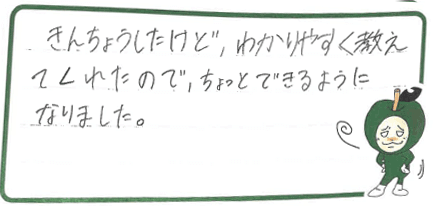 きんちょうしたけど,わかりやすく教え
てくれたので,ちょっとできるように
なりました。